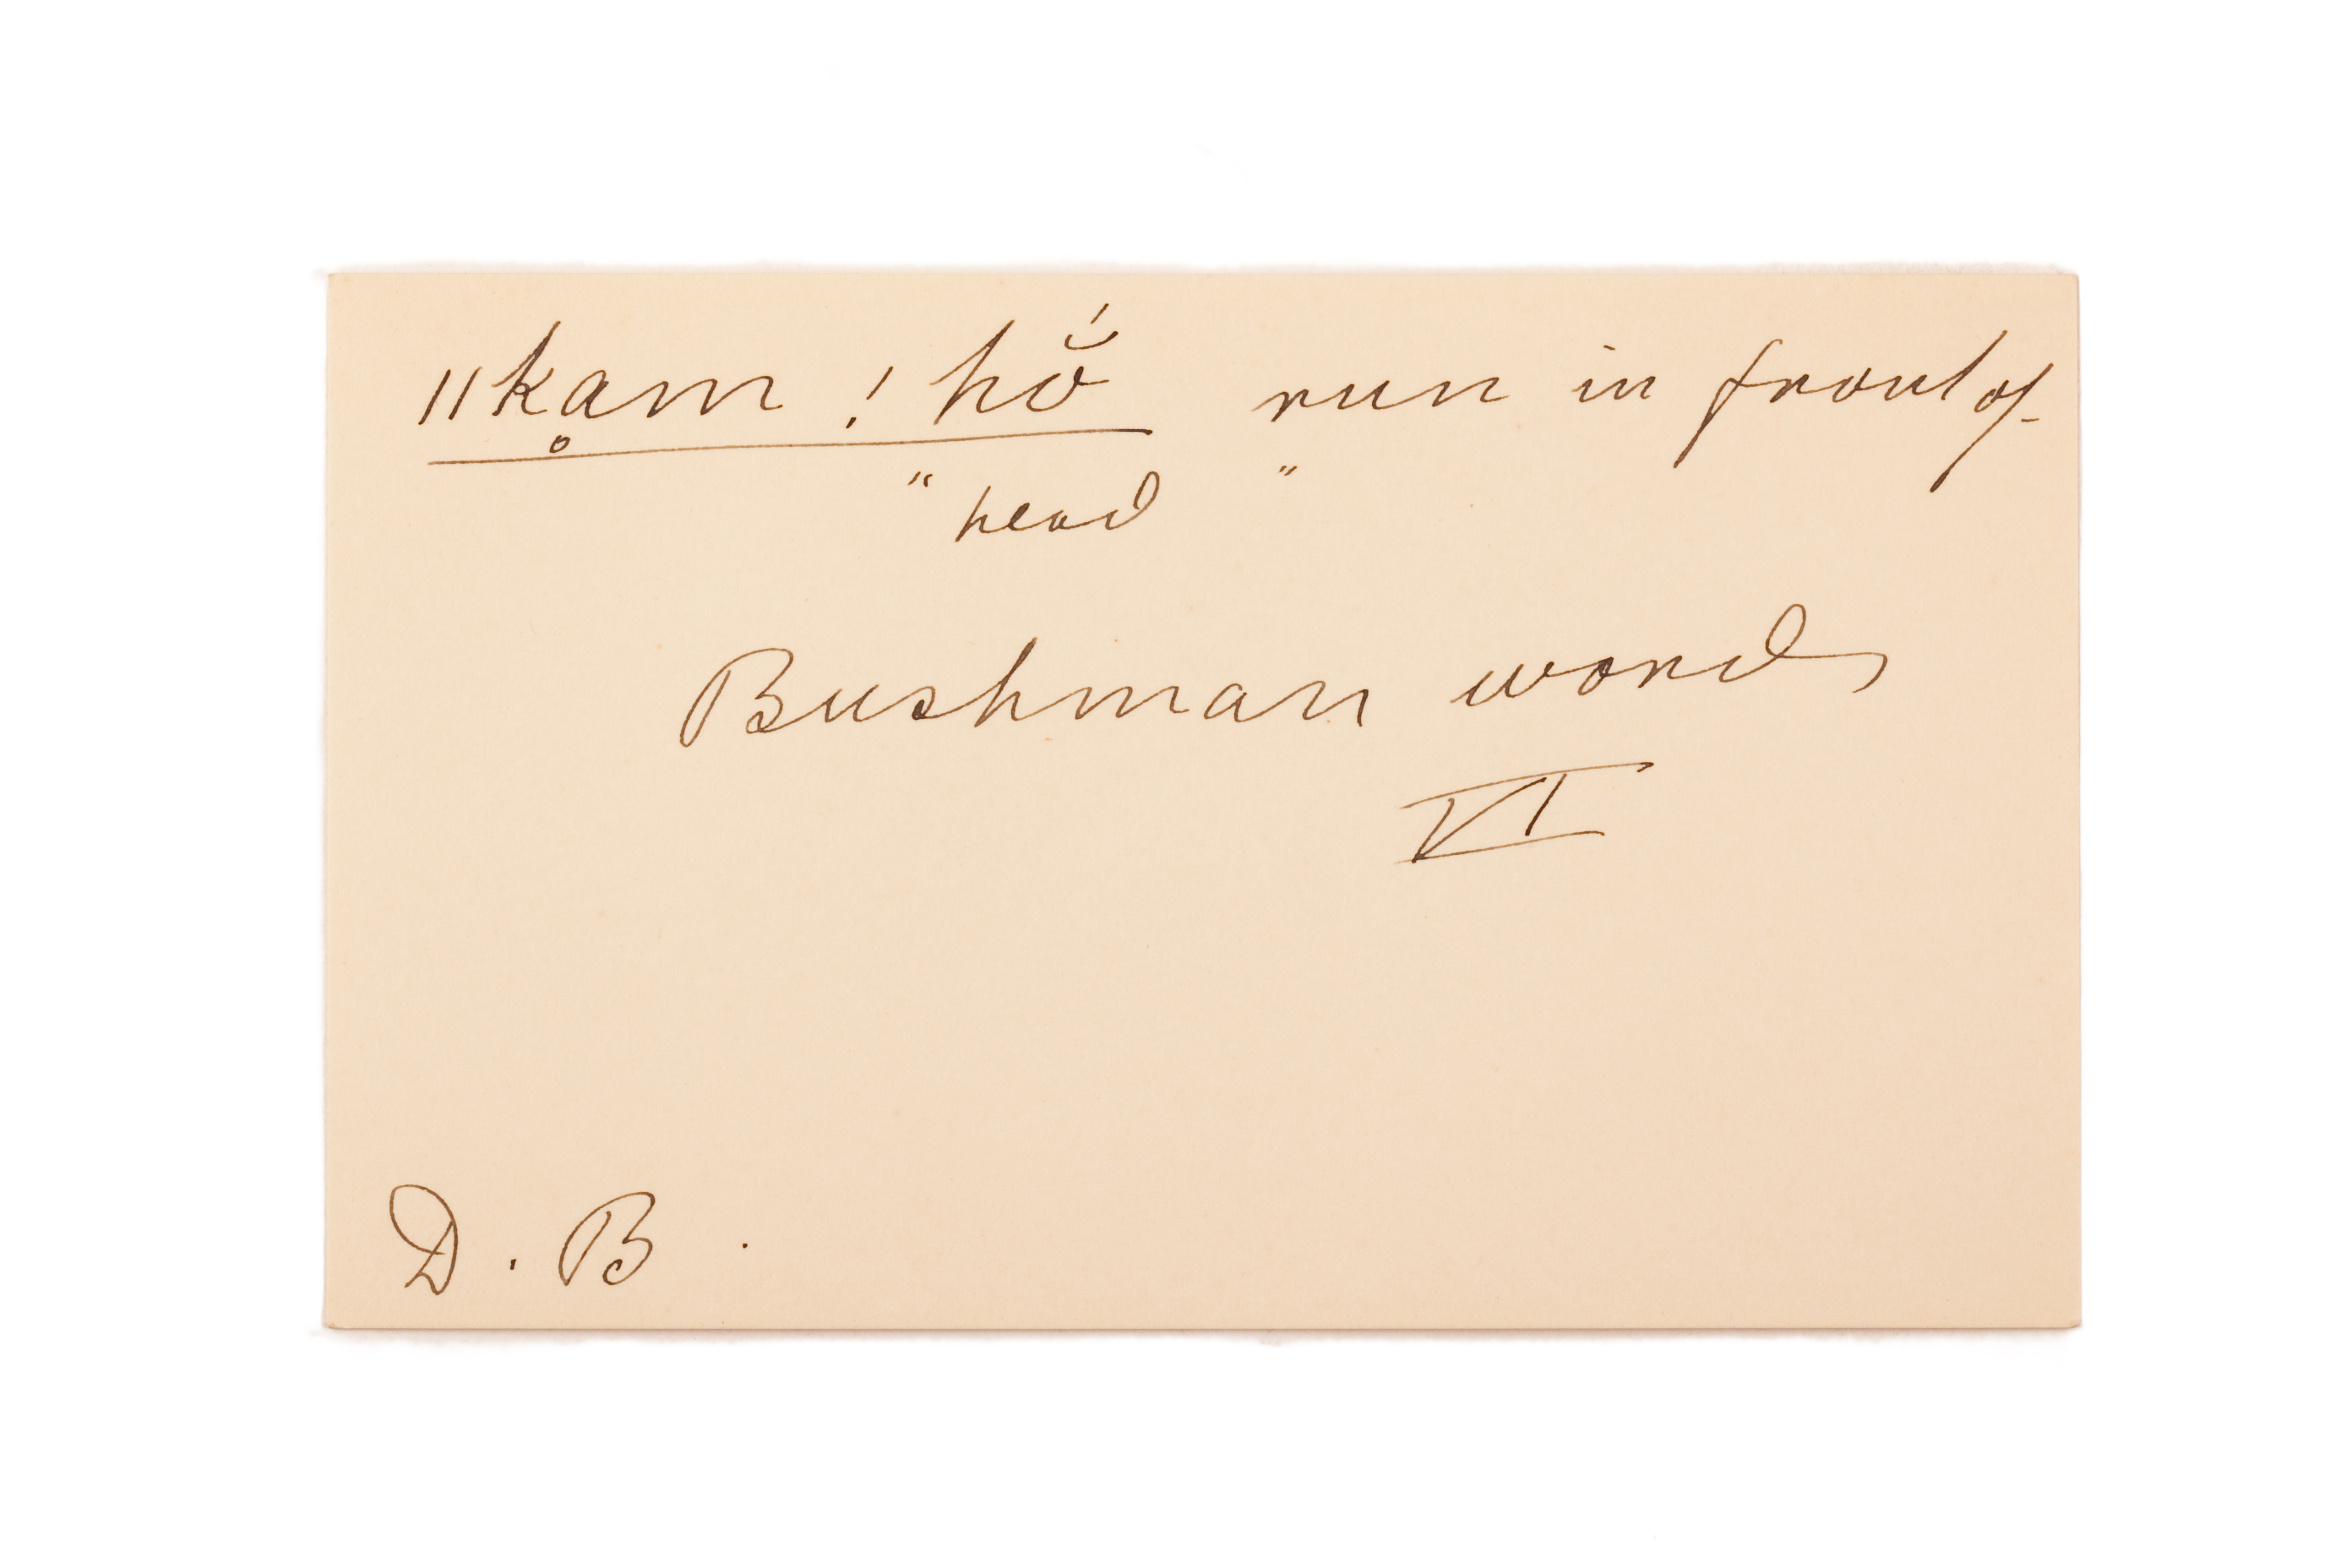 ǁkḁm !hŏ́ run in front of
" head "
Bushman words
VI
D. B.